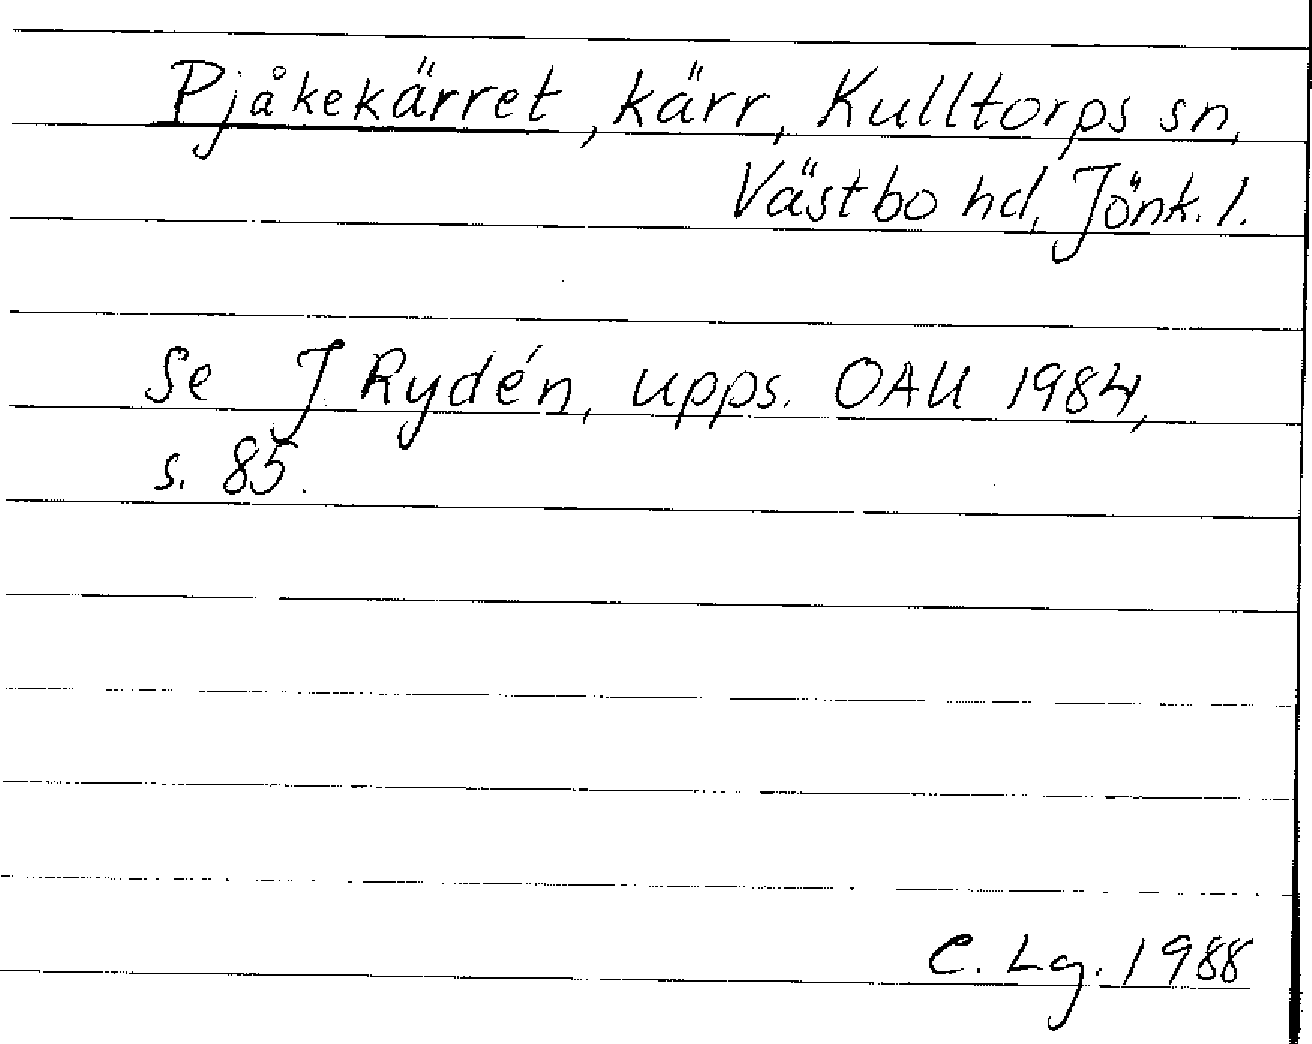 Pjåkekärret, kärr, Kulltorps sn,
Västbo hd, Jönk. l.
Se J Rydén, upps. OAU 1984,
s. 85.
C. Lg. 1988